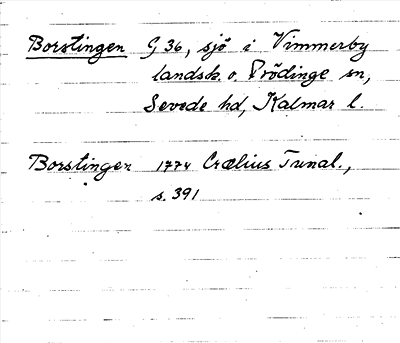 Borstingen G 36, sjö i Vimmerby
landsk. o. Frödinge sn,
Sevede hd, Kalmar l.
Borstingen 1774 Crælius Tunal.,
s. 391